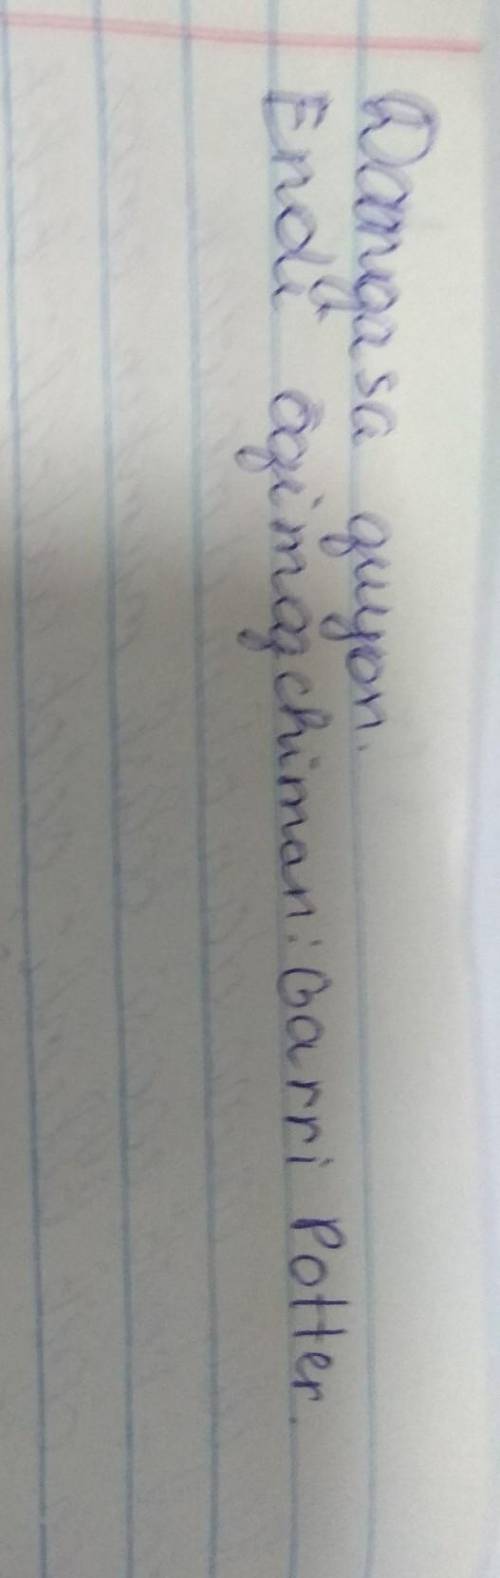 Dangasa quyon.
Endi õqimaqchiman: Garri Potter.